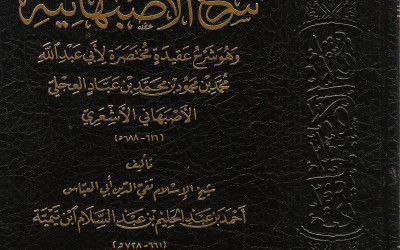 شرح الأصبهانية
وهو شرح عقيدة مختصرة لأبي عبد الله
محمد بن محمود بن محمد بن عباد العجلي
الأصبهاني الأشعري
(٦١٦-٦٨٨هـ)
تأليف
شيخ الإسلام تقي الدين أبي العباس
أحمد بن عبد الحليم بن عبد السلام ابن تيمية
(٦٦١-٧٢٨هـ)